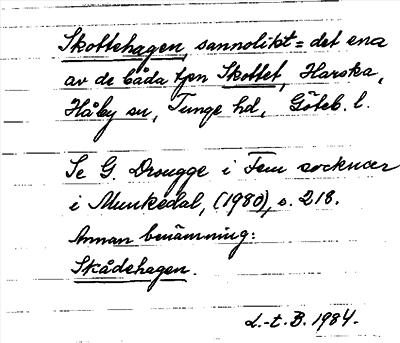 Skottehagen, sannolikt = det ena
av de båda tpn Skottet, Harska,
Håby sn, Tunge hd, Göteb. l.
Se G. Drougge i Fem socknar
i Munkedal, (1980), s. 218.
Annan benämning:
Skådehagen.
L.-t. B. 1984.